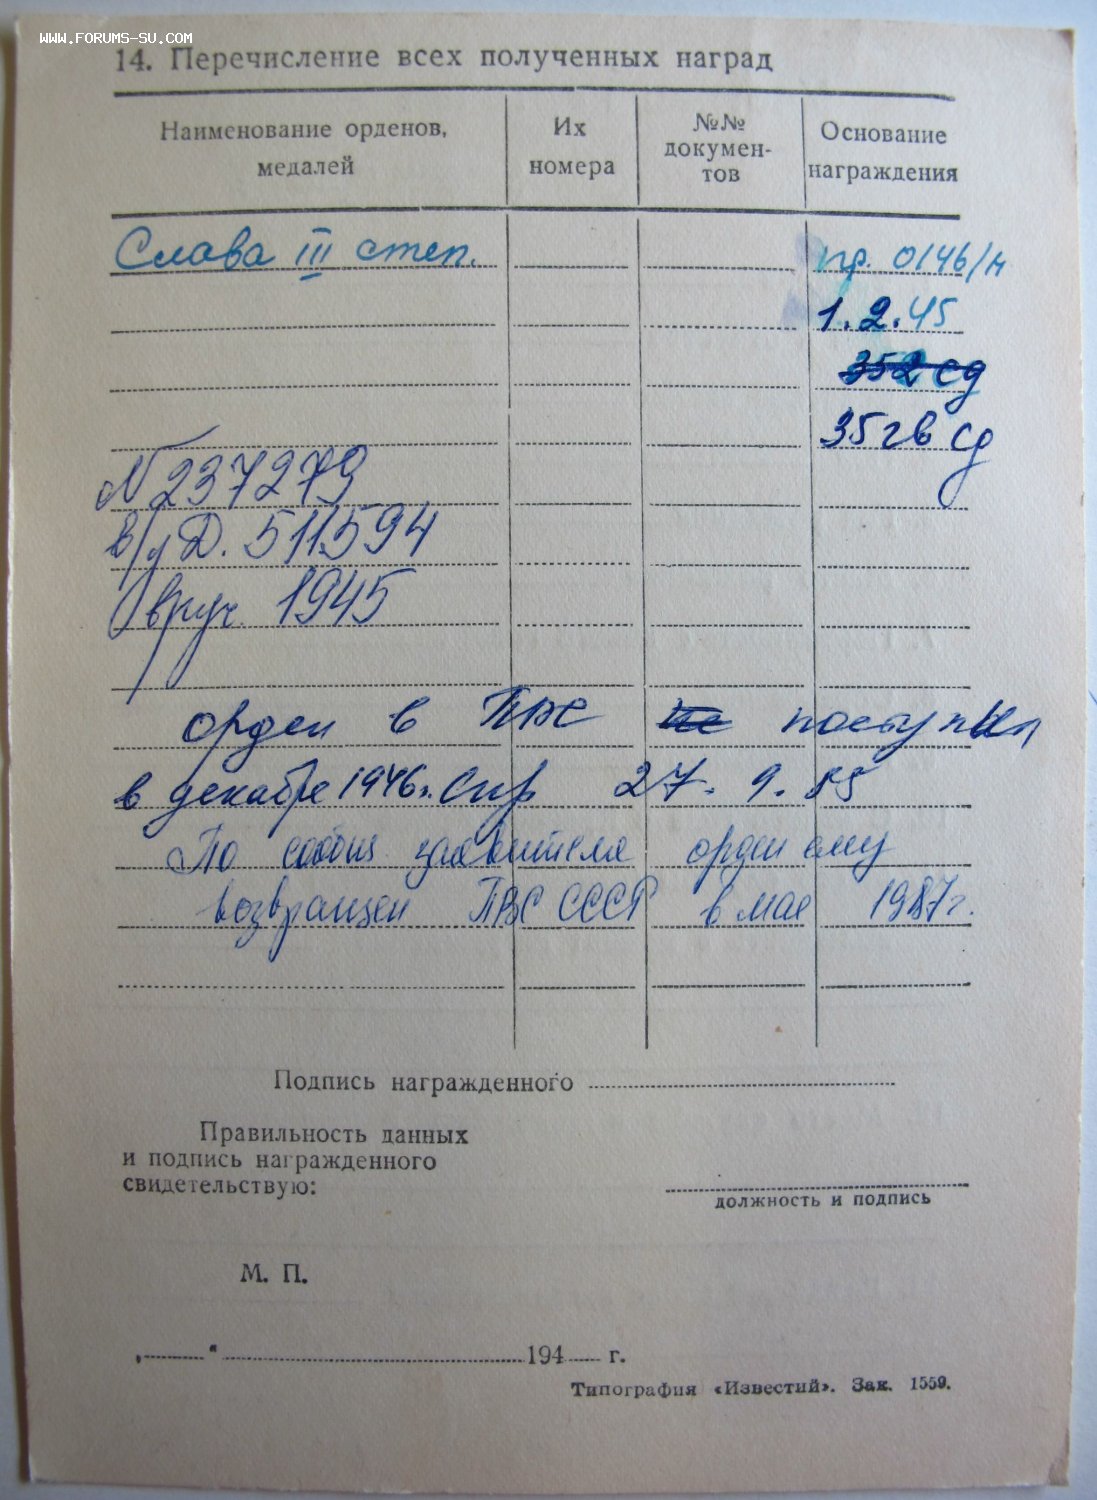 WWW.FORUMS-SU.COM
14. Перечисление всех полученных наград
Наименование орденов, медалей
Их номера
№№ докумен-
тов
Основание награждения
Слава III степ.
пр. 0146/н
1.2.45
352 сд
35 гв сд
N 237279
в/л Д. 511594
вруч. 1945
орден в ПВС не поступил
в декабре 1946г. Спр 27. 9. 85
По сообщ заявителя орден ему
возвращен ПВС СССР в мае 1987г.
Подпись награжденного
Правильность данных
и подпись награжденного
свидетельствую:
должность и подпись
М. П.
„ “ 194 г.
Типография «Известий». Зак. 1559.